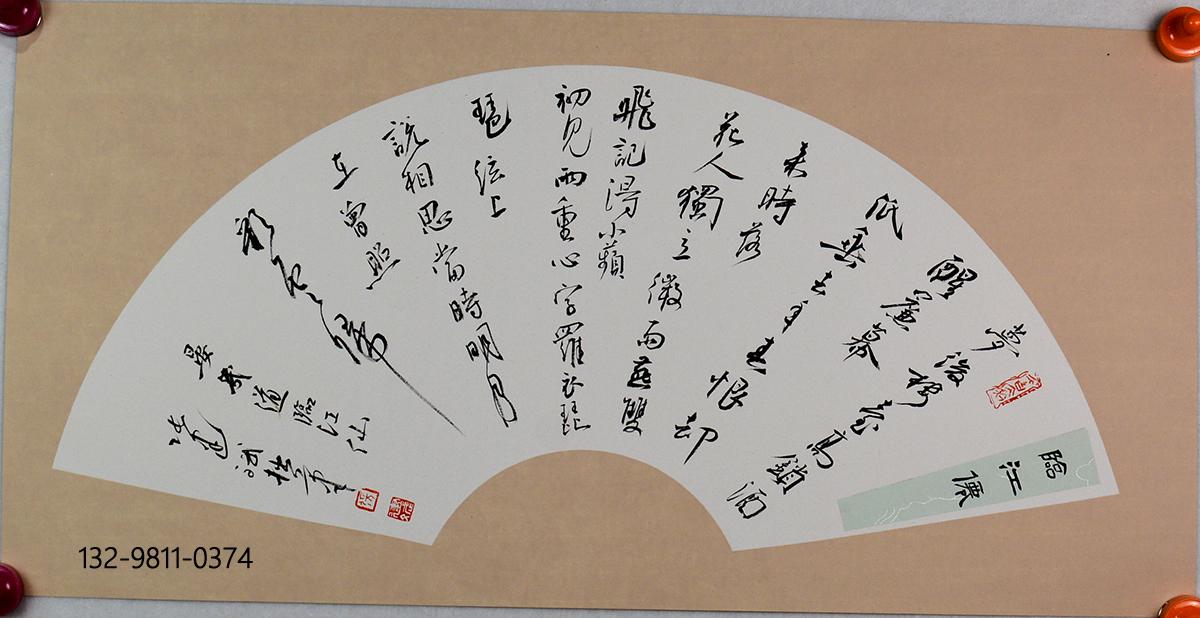 臨江僊
夢後樓臺高鎖酒
醒簾幕
低垂去年春恨却
來時落
花人獨立微雨燕雙
飛記得小蘋
初見兩重心字羅衣琵
琶絃上
說相思當時明月
在曾照
彩雲歸
晏幾道臨江仙
132-9811-0374